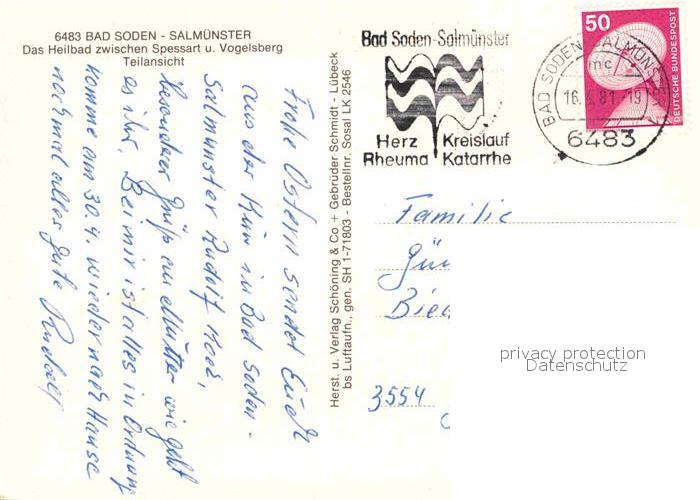 6483 BAD SODEN - SALMÜNSTER
Das Heilbad zwischen Spessart u. Vogelsberg
Teilansicht
Frohe Ostern sendet Euch
aus der Kur in Bad Soden-
Salmünster Rudolf
besonders Grüß an Mutter wie geht
es ihr, Bei mir ist alles in Ordnung
komme am 30.4. wieder nach Hause
nochmal alles gute Rudolf
Herst. u. Verlag Schöning & Co + Gebrüder Schmidt - Lübeck
bs Luftaufn., gen. SH 1-71803 - Bestellnr. Sosal LK 2546
Bad Soden-Salmünster
Herz Kreislauf
Rheuma Katarrhe
BAD SODEN-SALMÜNSTER
mc
16.4.81-19
6483
50
DEUTSCHE BUNDESPOST
Familie
3554
privacy protection
Datenschutz